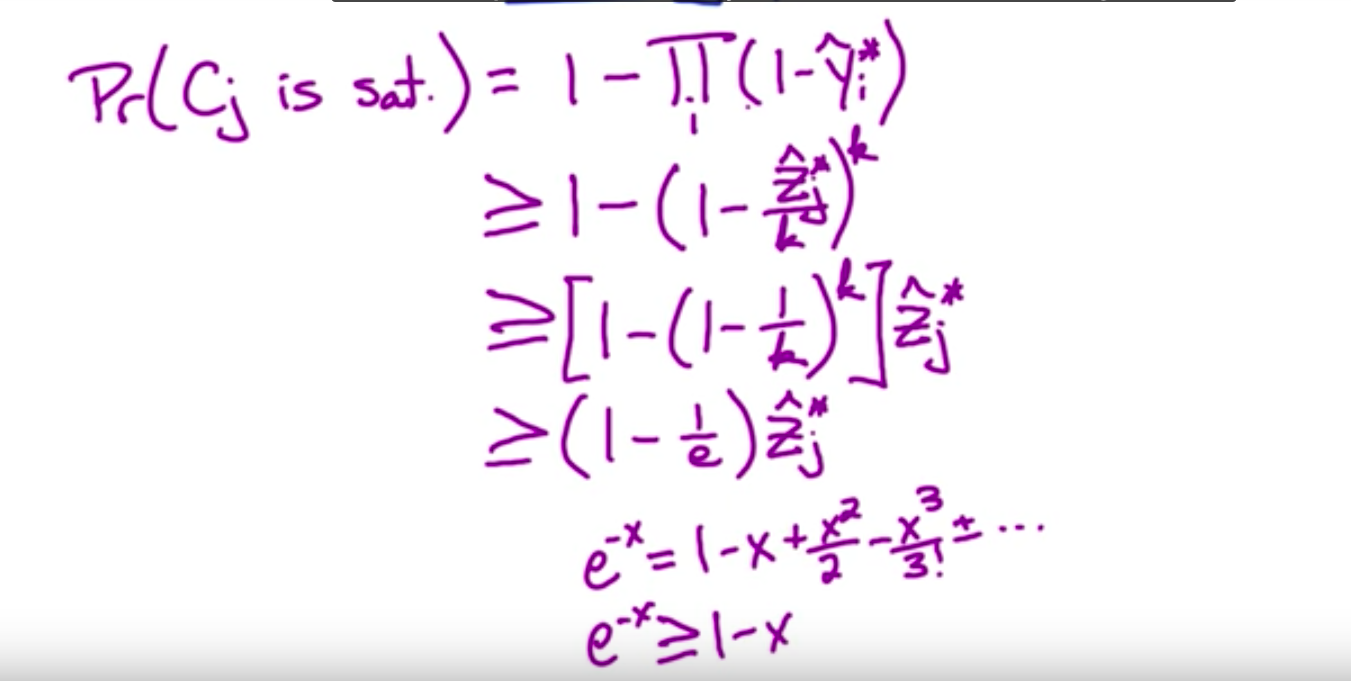 Pr(Cj is sat.) = 1 - ∏_i (1 - ŷ_i^*)
≥ 1 - (1 - ẑ_j^*/k)^k
≥ [1 - (1 - 1/k)^k] ẑ_j^*
≥ (1 - 1/e) ẑ_j^*
e^{-x} = 1 - x + x^2/2 - x^3/3! ± ...
e^{-x} ≥ 1 - x